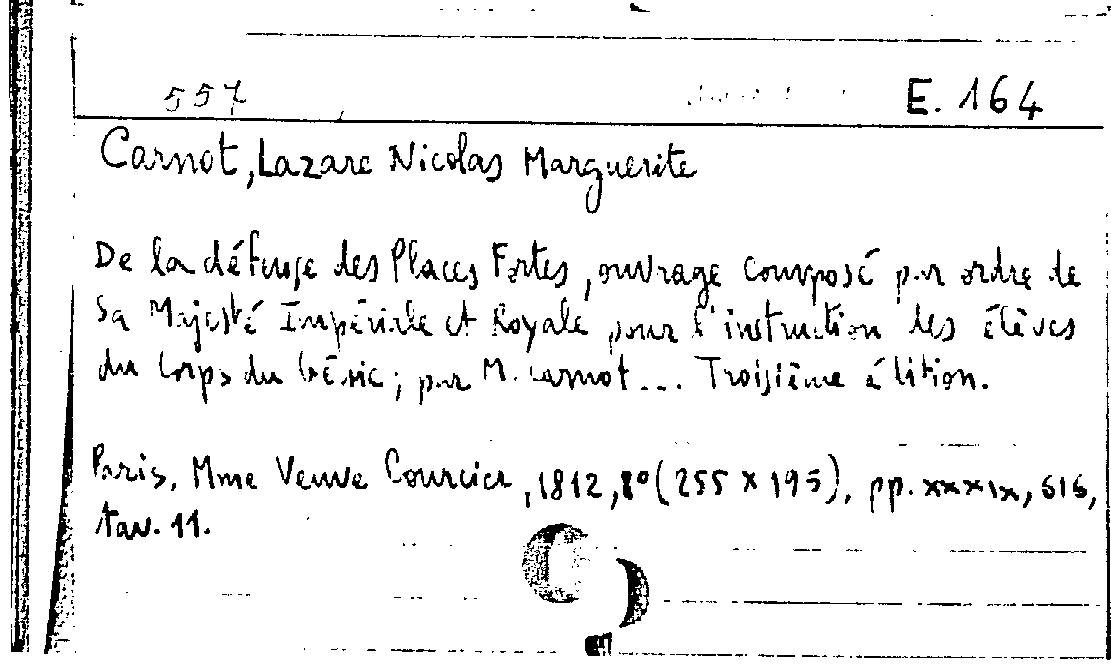 557 E. 164
Carnot, Lazare Nicolas Marguerite
De la défense des Places Fortes, ouvrage composé par ordre de
Sa Majesté Impériale et Royale pour l'instruction des élèves
du Corps du Génie; par M. Carnot... Troisième édition.
Paris, Mme Veuve Courcier, 1812, 8° (255 x 195), pp. xxxix, 616,
tav. 11.